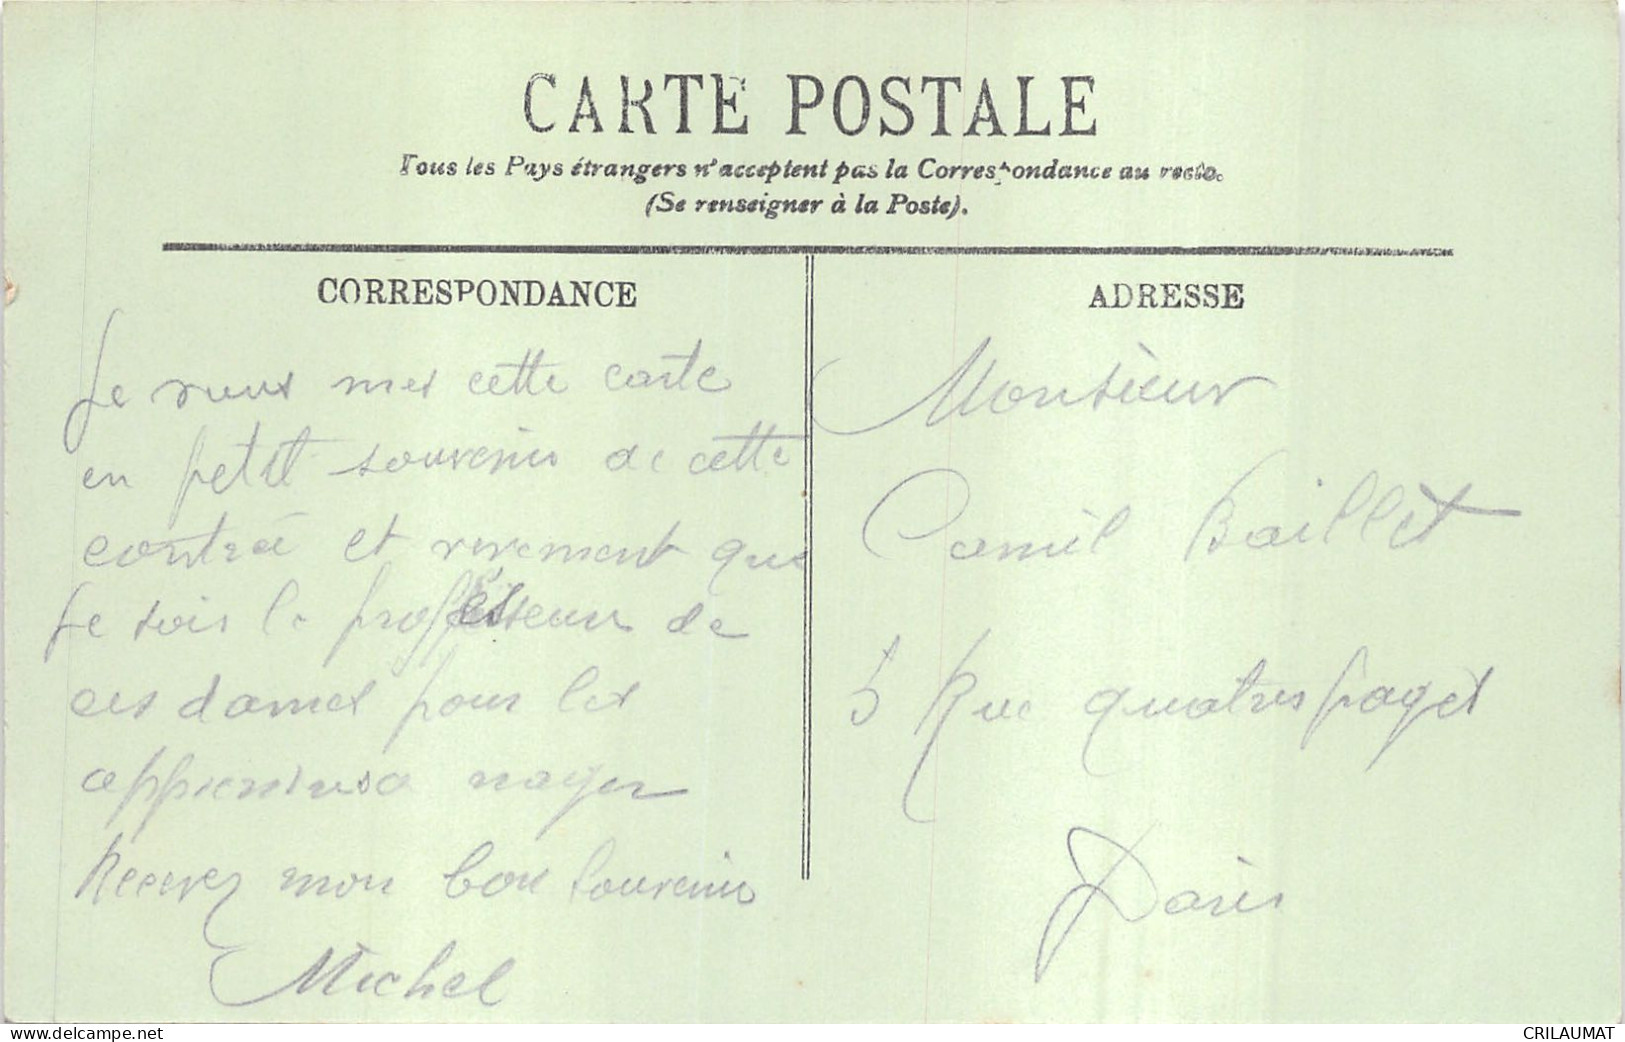 CARTE POSTALE
Tous les Pays étrangers n'acceptent pas la Correspondance au recto.
(Se renseigner à la Poste).
CORRESPONDANCE
Je met cette carte
en petit souvenir de cette
contrée et que
Je sois le professeur de
ces dames pour les
nager
Recevez mon bon souvenir
Michel
ADRESSE
Monsieur
Camil Baillet
5 Rue quatres
Paris
www.delcampe.net
CRILAUMAT